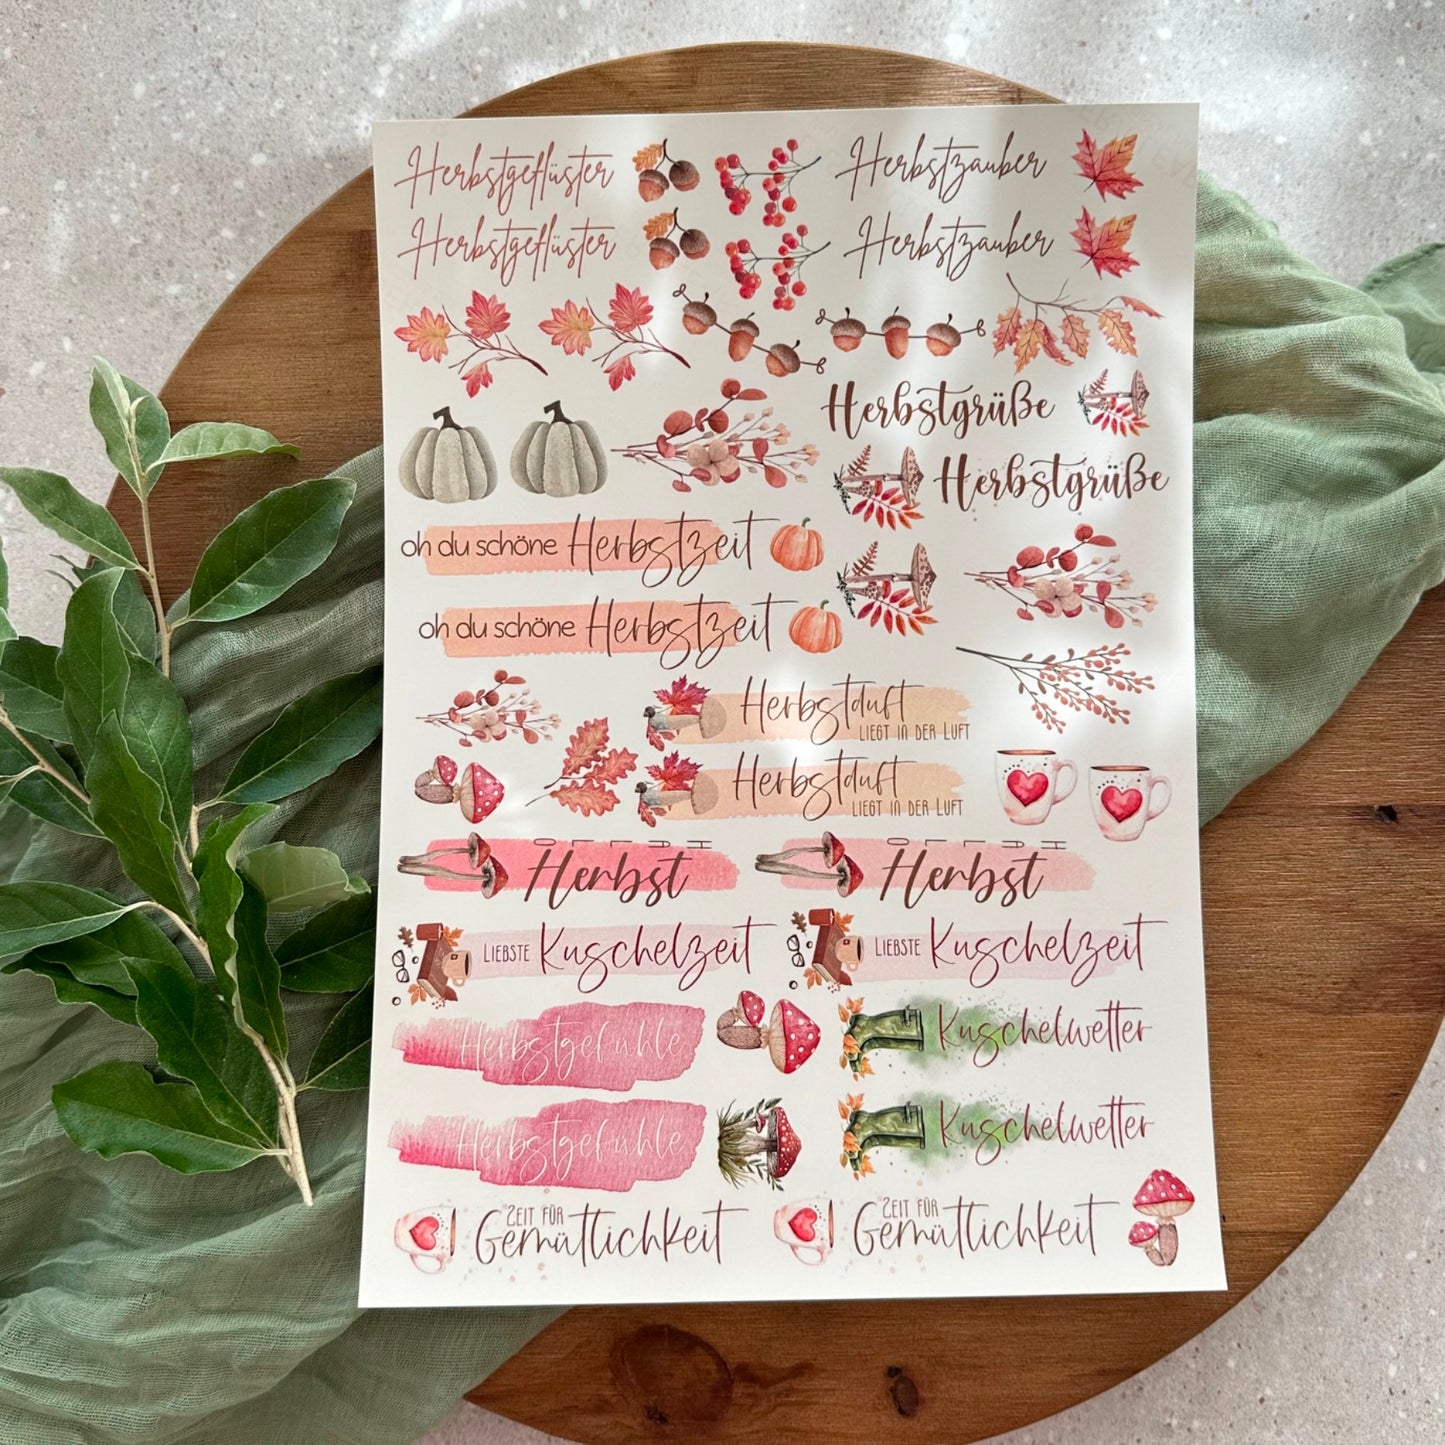 Herbstgeflüster
Herbstzauber
Herbstgeflüster
Herbstzauber
Herbstgrüße
Herbstgrüße
oh du schöne Herbstzeit
oh du schöne Herbstzeit
Herbstduft
LIEGT IN DER LUFT
Herbstduft
LIEGT IN DER LUFT
HALLO
Herbst
HALLO
Herbst
LIEBSTE Kuschelzeit
LIEBSTE Kuschelzeit
Herbstgefühle
Kuschelwetter
Herbstgefühle
Kuschelwetter
ZEIT FÜR
Gemütlichkeit
ZEIT FÜR
Gemütlichkeit